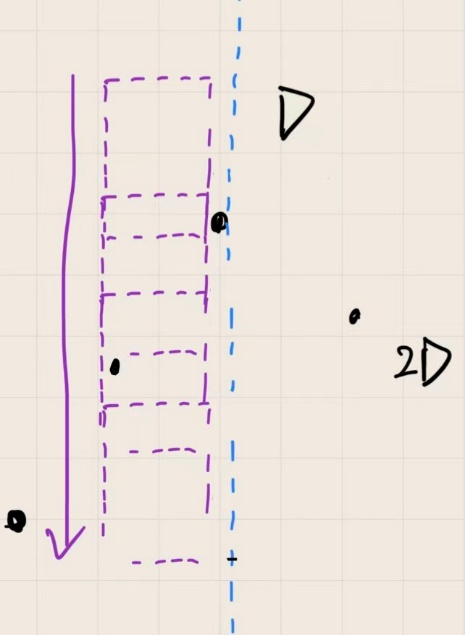 D
2D